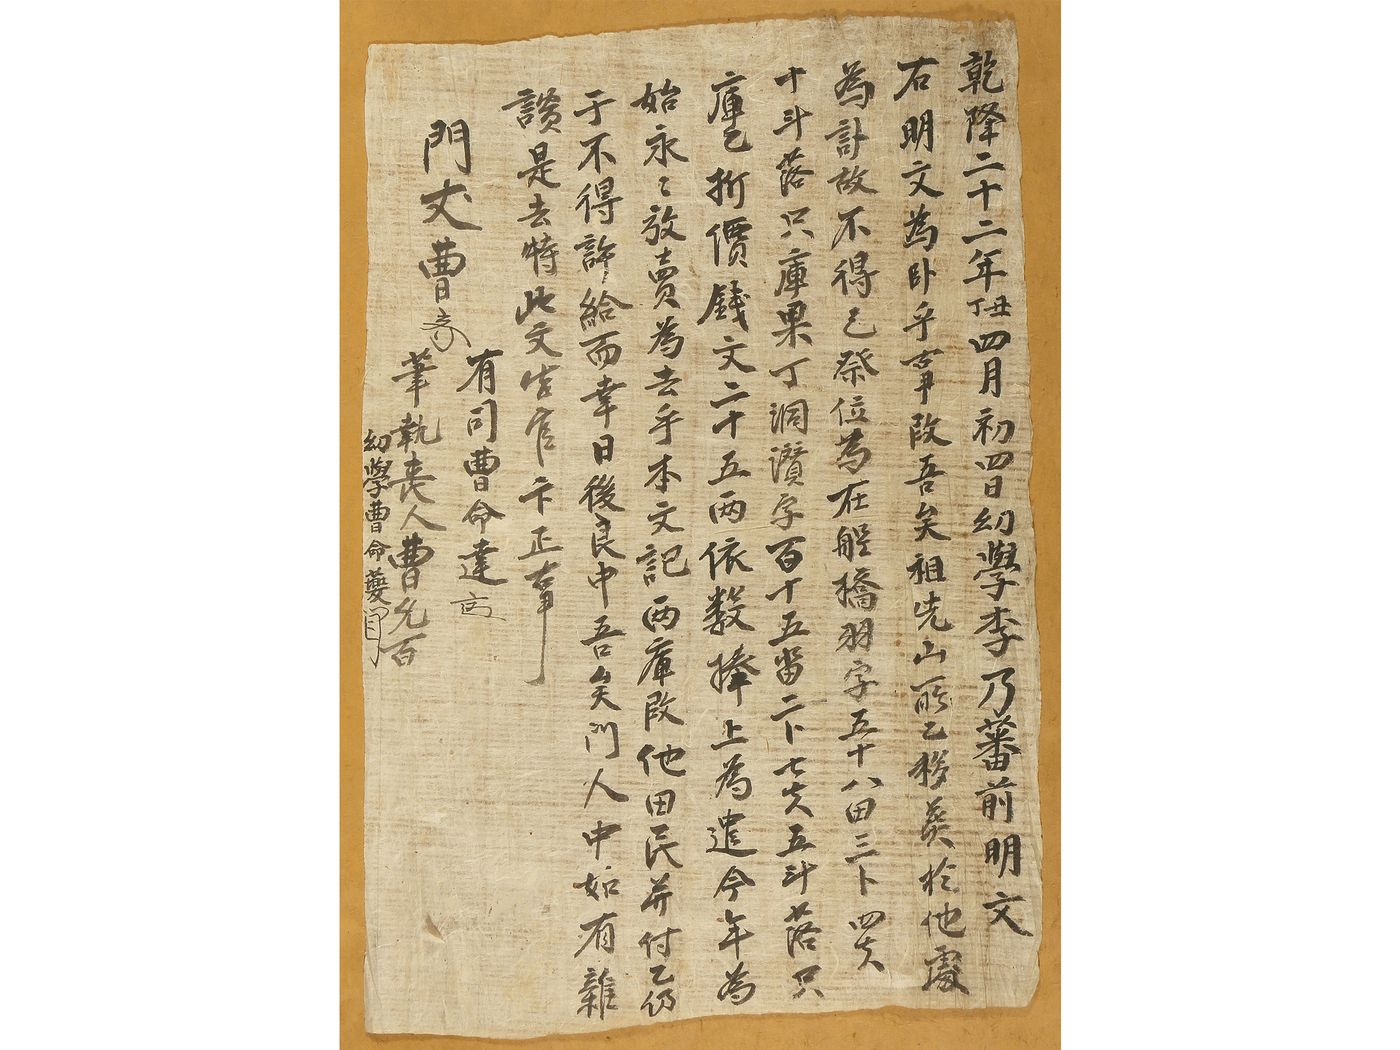 乾隆二十二年丁丑四月初四日幼學李乃蕃前明文
右明文為臥乎事段吾矣祖先山所乙移葬於他處
為計故不得已祭位為在船橋羽字五十八田三卜四夫
十斗落只庫果丁洞讃字百十五畓二卜七夫五斗落只
庫乙折價錢文二十五兩依數捧上為遣今年為
始永〻放賣為去乎本文記兩庫段他田民并付乙仍
于不得許給而幸日後良中吾矣門人中如有雜
談是去等此文告官卞正事
門丈曹
有司曹命達
筆執喪人曹允百
幼學曹命夔